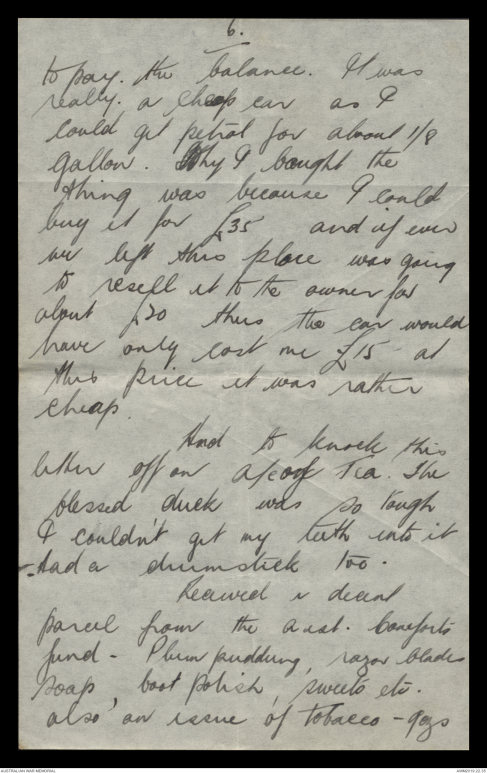 6.
to pay. the balance. It was
really. a cheap car as I
could get petrol for about 1/8
gallon. Why I bought the
thing was because I could
buy it for £35 and if ever
we left this place was going
to resell it to the owner for
about £20 thus the car would
have only cost me £15 - at
this price it was rather
cheap.
And to knock this
letter off on a/c of Tea. The
blessed duck was so tough
I couldn't get my teeth into it
- had a drumstick too.
Received a decent
parcel from the Aust. Comforts
fund - Plum pudding, razor blades
soap, boot polish, sweets etc.
also an issue of tobacco - 9ozs
AUSTRALIAN WAR MEMORIAL